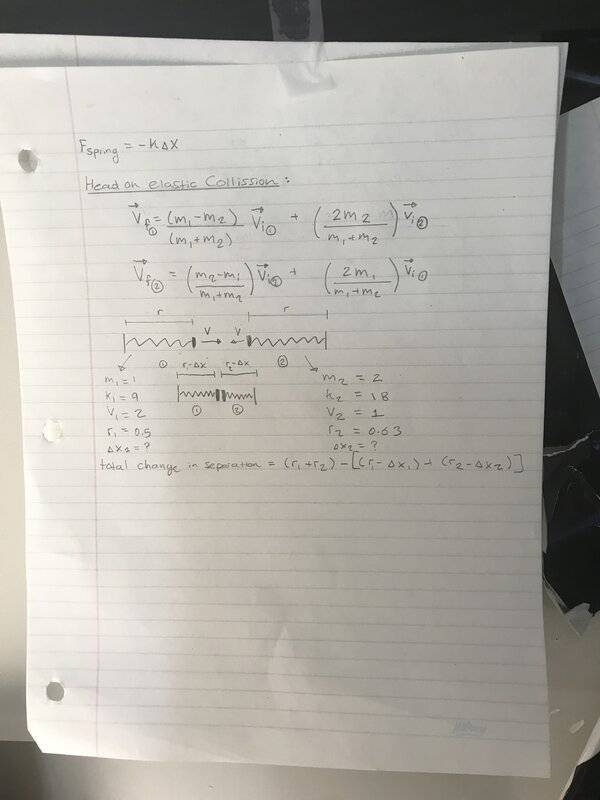 F_spring = -kΔx
Head on elastic Collission :
V⃗_f① = (m₁-m₂)/(m₁+m₂) V⃗_i① + (2m₂/(m₁+m₂)) V⃗_i②
V⃗_f② = ((m₂-m₁)/(m₁+m₂)) V⃗_i② + (2m₁/(m₁+m₂)) V⃗_i①
r r
V V
① r₁-Δx r₂-Δx ②
m₁ = 1 m₂ = 2
① ②
k₁ = 9 k₂ = 18
V₁ = 2 V₂ = 1
r₁ = 0.5 r₂ = 0.63
Δx₂ = ? Δx₂ = ?
total change in separation = (r₁+r₂) - [(r₁-Δx₁) + (r₂-Δx₂)]